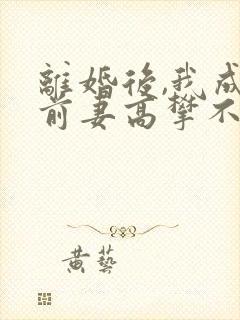 離婚後,我成
前妻高攀不
黄藝